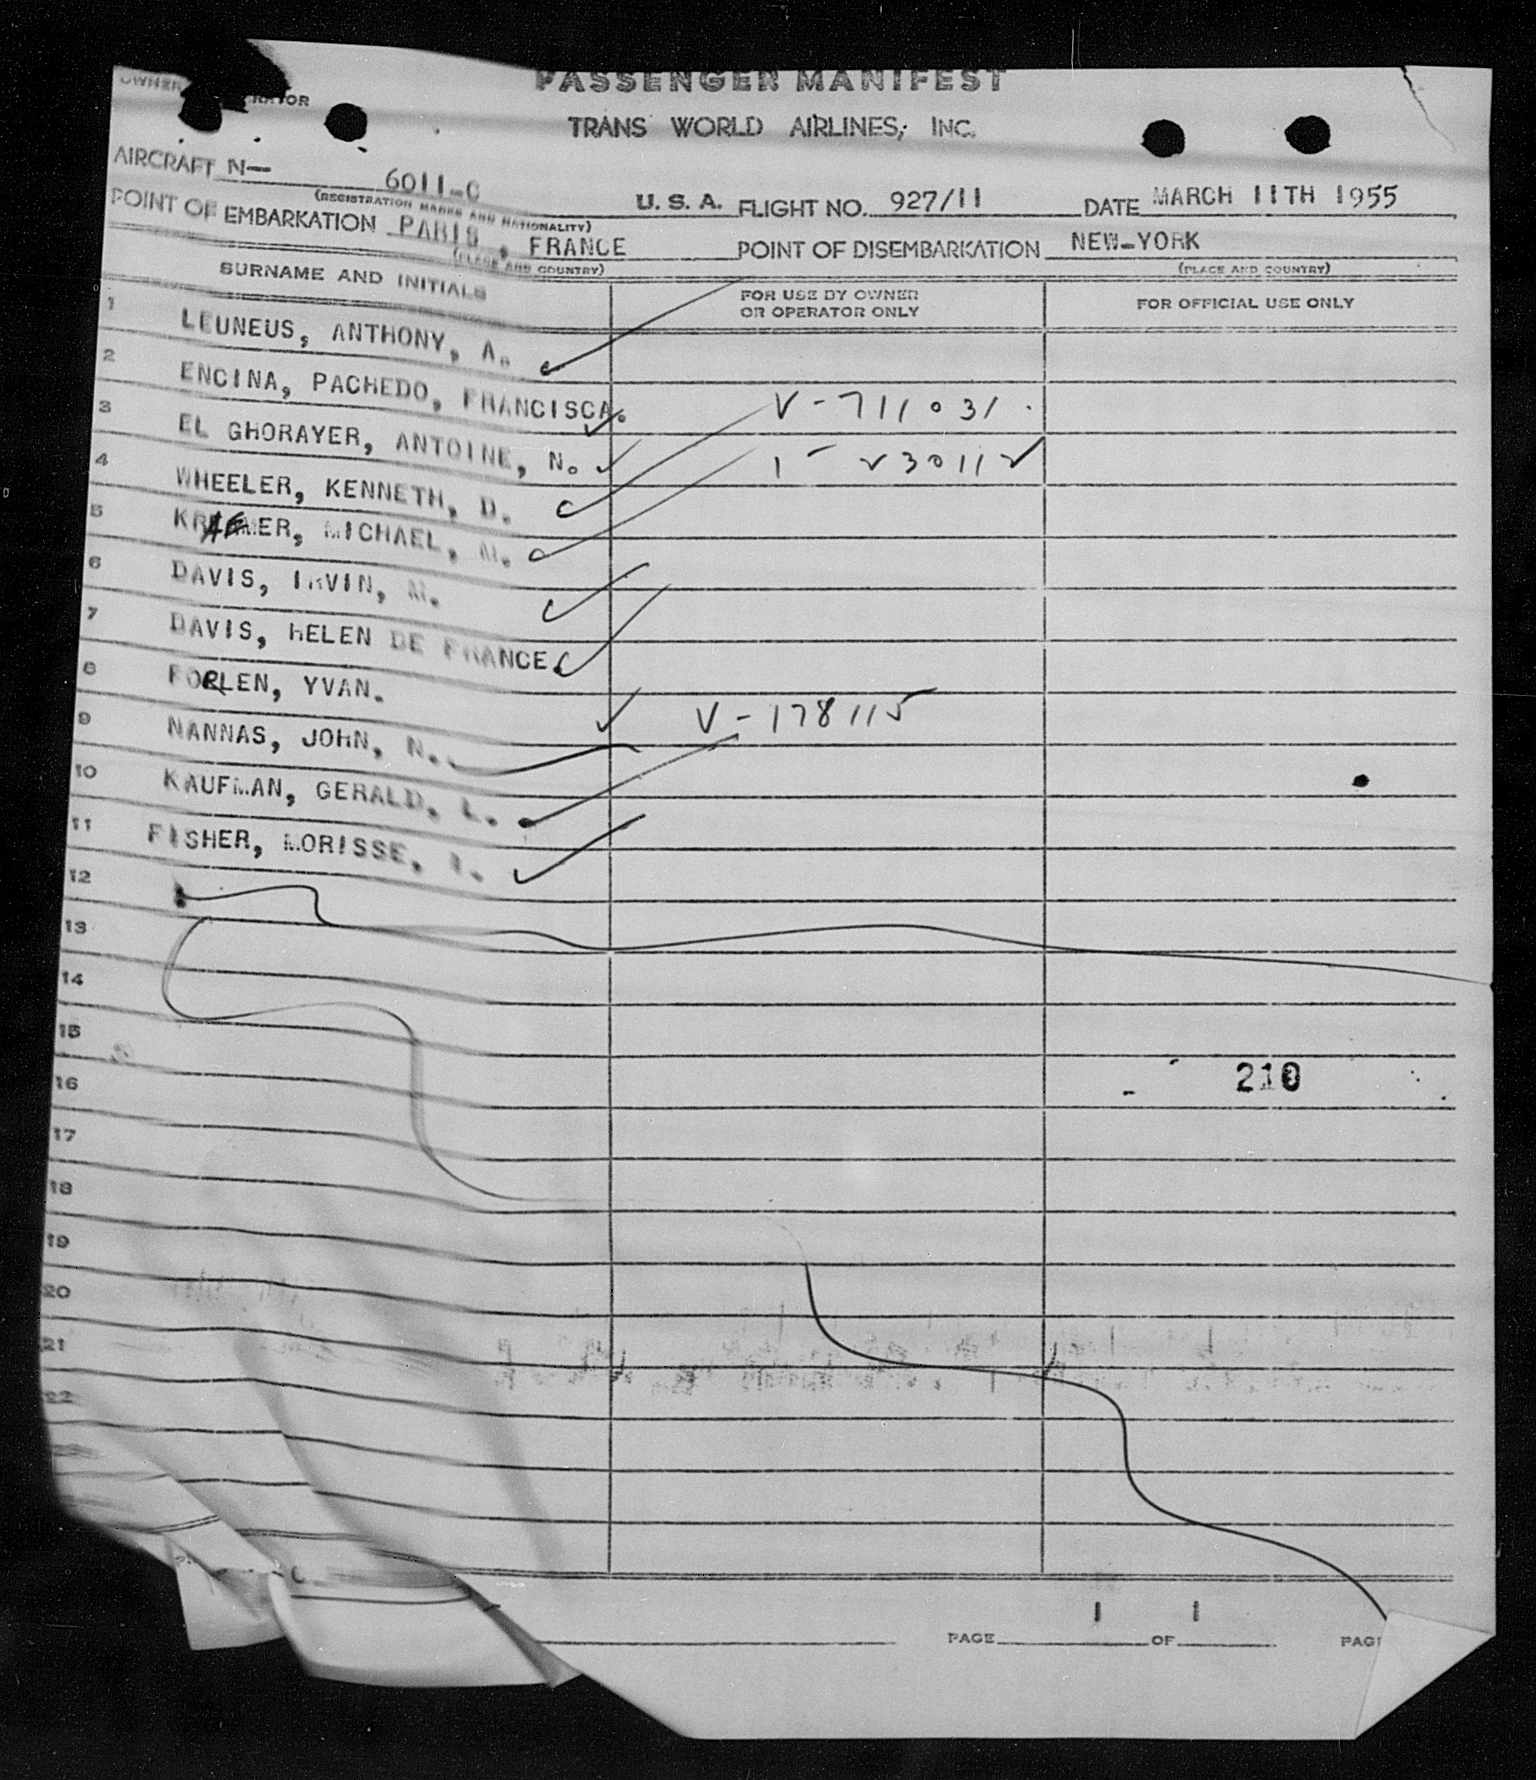 PASSENGER MANIFEST
OWNER OR OPERATOR
TRANS WORLD AIRLINES, INC.
AIRCRAFT N— 6011-C U. S. A. FLIGHT NO. 927/11 DATE MARCH 11TH 1955
(REGISTRATION MARKS AND NATIONALITY)
POINT OF EMBARKATION PARIS, FRANCE POINT OF DISEMBARKATION NEW-YORK
(PLACE AND COUNTRY) (PLACE AND COUNTRY)
SURNAME AND INITIALS FOR USE BY OWNER OR OPERATOR ONLY FOR OFFICIAL USE ONLY
1 LEUNEUS, ANTHONY, A.
2 ENCINA, PACHEDO, FRANCISCA. V-711031.
3 EL GHORAYER, ANTOINE, N.
4 WHEELER, KENNETH, D.
5 MICHAEL, M.
6 DAVIS, IRVIN, M.
7 DAVIS, HELEN DE FRANCE.
8 FORLEN, YVAN. V-178115
9 NANNAS, JOHN, N.
10 KAUFMAN, GERALD, L.
11 FISHER, MORISSE,
12
13
14
15
16 210
17
18
19
20
21
22
PAGE 1 OF 1